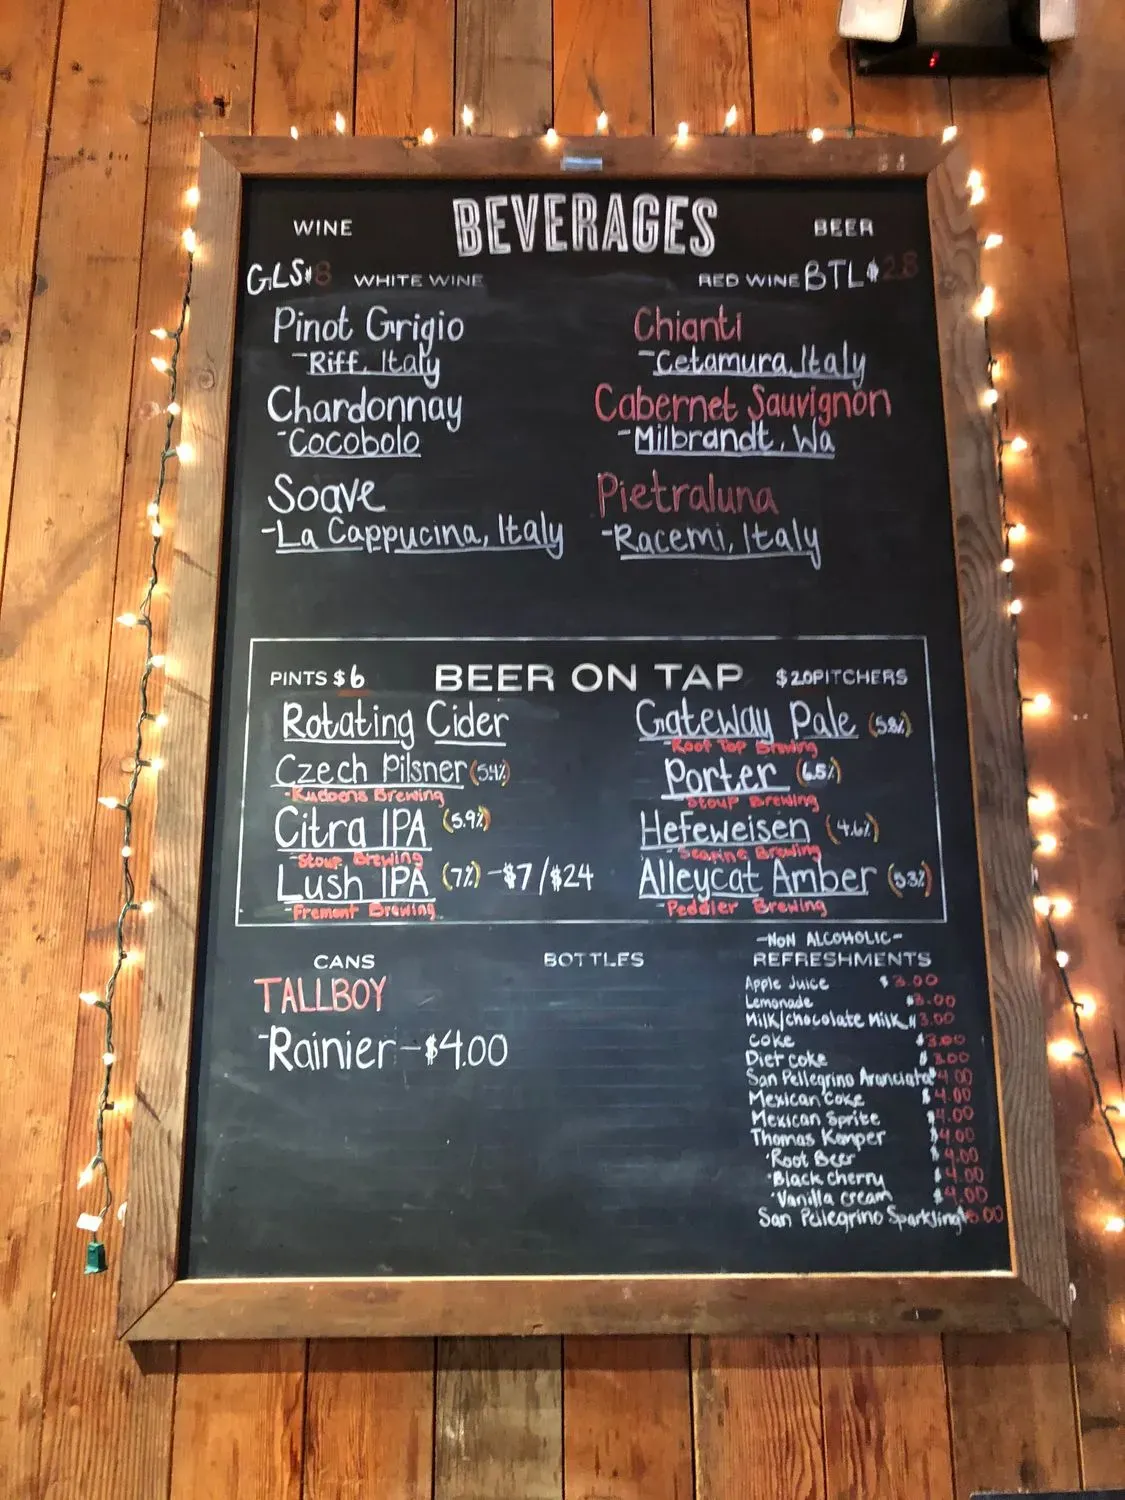 BEVERAGES
WINE
BEER
GLS $8 WHITE WINE
RED WINE BTL $28
Pinot Grigio
-Riff, Italy
Chardonnay
-Cocobolo
Soave
-La Cappucina, Italy
Chianti
-Cetamura, Italy
Cabernet Sauvignon
-Milbrandt, Wa
Pietraluna
-Racemi, Italy
PINTS $6 BEER ON TAP $20 PITCHERS
Rotating Cider
Czech Pilsner (5.4%)
-Kudoens Brewing
Citra IPA (5.9%)
-Stoup Brewing
Lush IPA (7%) -$7/$24
-Fremont Brewing
Gateway Pale (5.8%)
-Roof Top Brewing
Porter (6.5%)
Stoup Brewing
Hefeweisen (4.6%)
Brewing
Alleycat Amber (5.3%)
-Peddler Brewing
CANS
TALLBOY
-Rainier-$4.00
BOTTLES
-NON ALCOHOLIC-
REFRESHMENTS
Apple Juice $3.00
Lemonade $3.00
Milk/chocolate Milk $3.00
Coke $3.00
Diet coke $3.00
San Pellegrino Aranciata $4.00
Mexican Coke $4.00
Mexican Sprite $4.00
Thomas Kemper $4.00
·Root Beer $4.00
·Black cherry $4.00
·Vanilla cream $4.00
San Pellegrino Sparkling $5.00